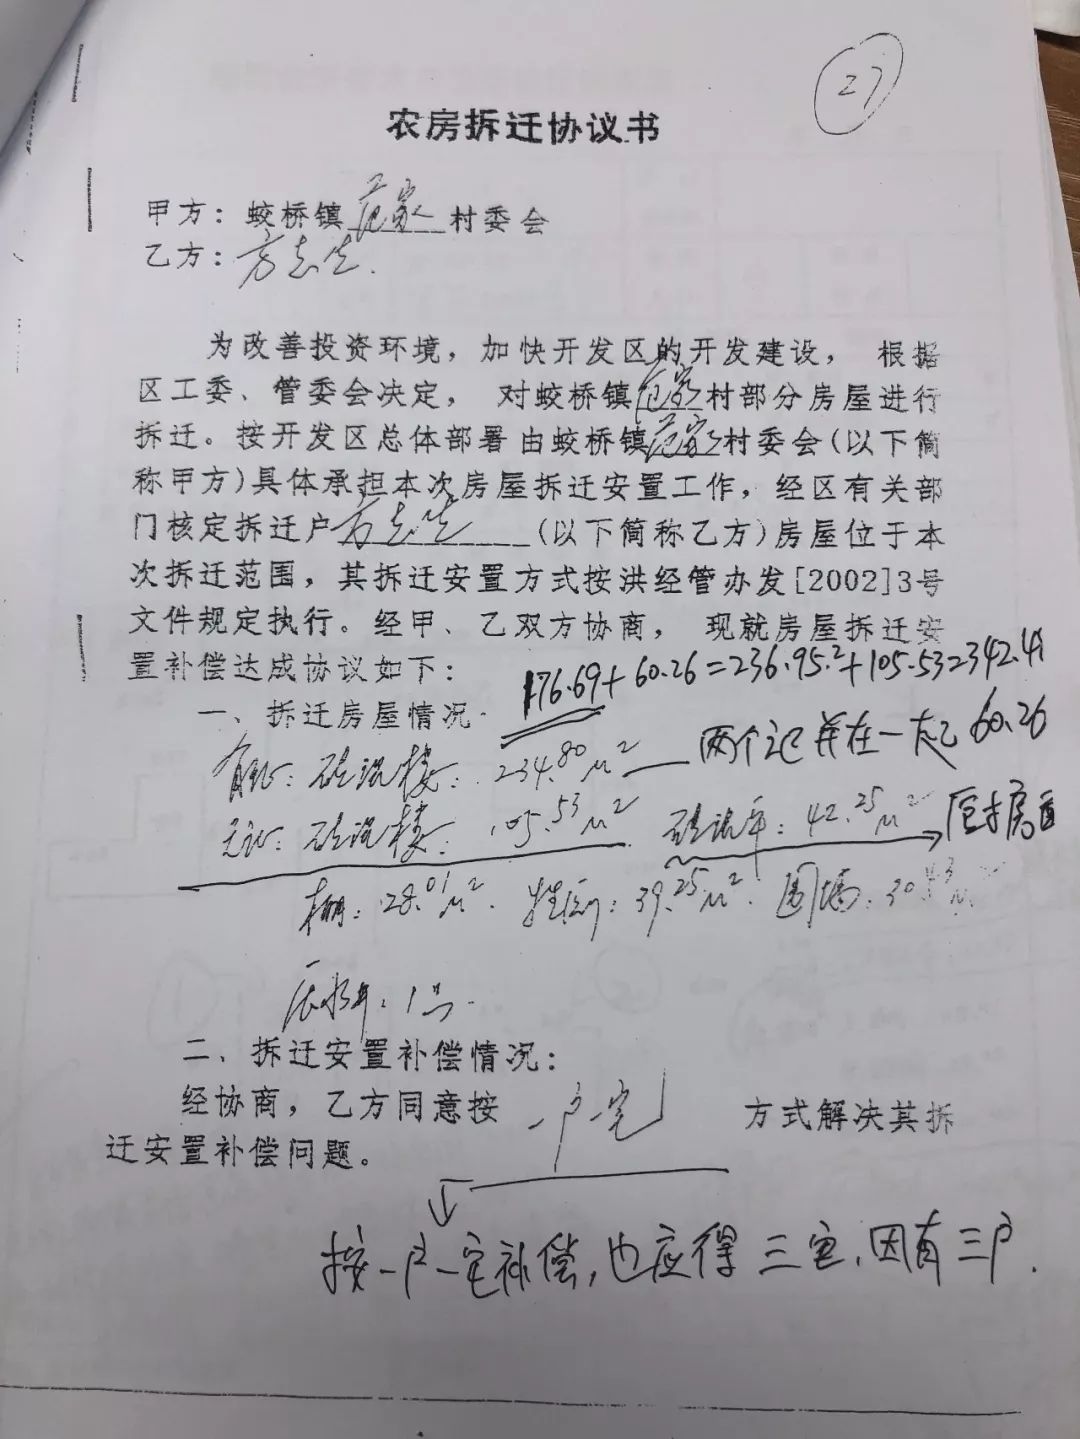 27
农房拆迁协议书
甲方：蛟桥镇范家村委会
乙方：方志生.
为改善投资环境，加快开发区的开发建设， 根据
区工委、管委会决定， 对蛟桥镇范家村部分房屋进行
拆迁。按开发区总体部署由蛟桥镇范家村委会(以下简
称甲方)具体承担本次房屋拆迁安置工作，经区有关部
门核定拆迁户方志生(以下简称乙方)房屋位于本
次拆迁范围，其拆迁安置方式按洪经管办发[2002]3号
文件规定执行。经甲、乙双方协商， 现就房屋拆迁安
置补偿达成协议如下：
176.69+60.26=236.95.²+105.53=342.48
一、拆迁房屋情况
有证：砖混楼：234.80M² 两个证并在一起 60.26
无证：砖混楼：105.53M² 砖混平：42.25M²
棚：28.01M². 39.25M². 围墙：30.43M
1号.
二、拆迁安置补偿情况：
经协商，乙方同意按 一户一宅 方式解决其拆
迁安置补偿问题。
按一户一宅补偿，也应得三宅，因有三户.